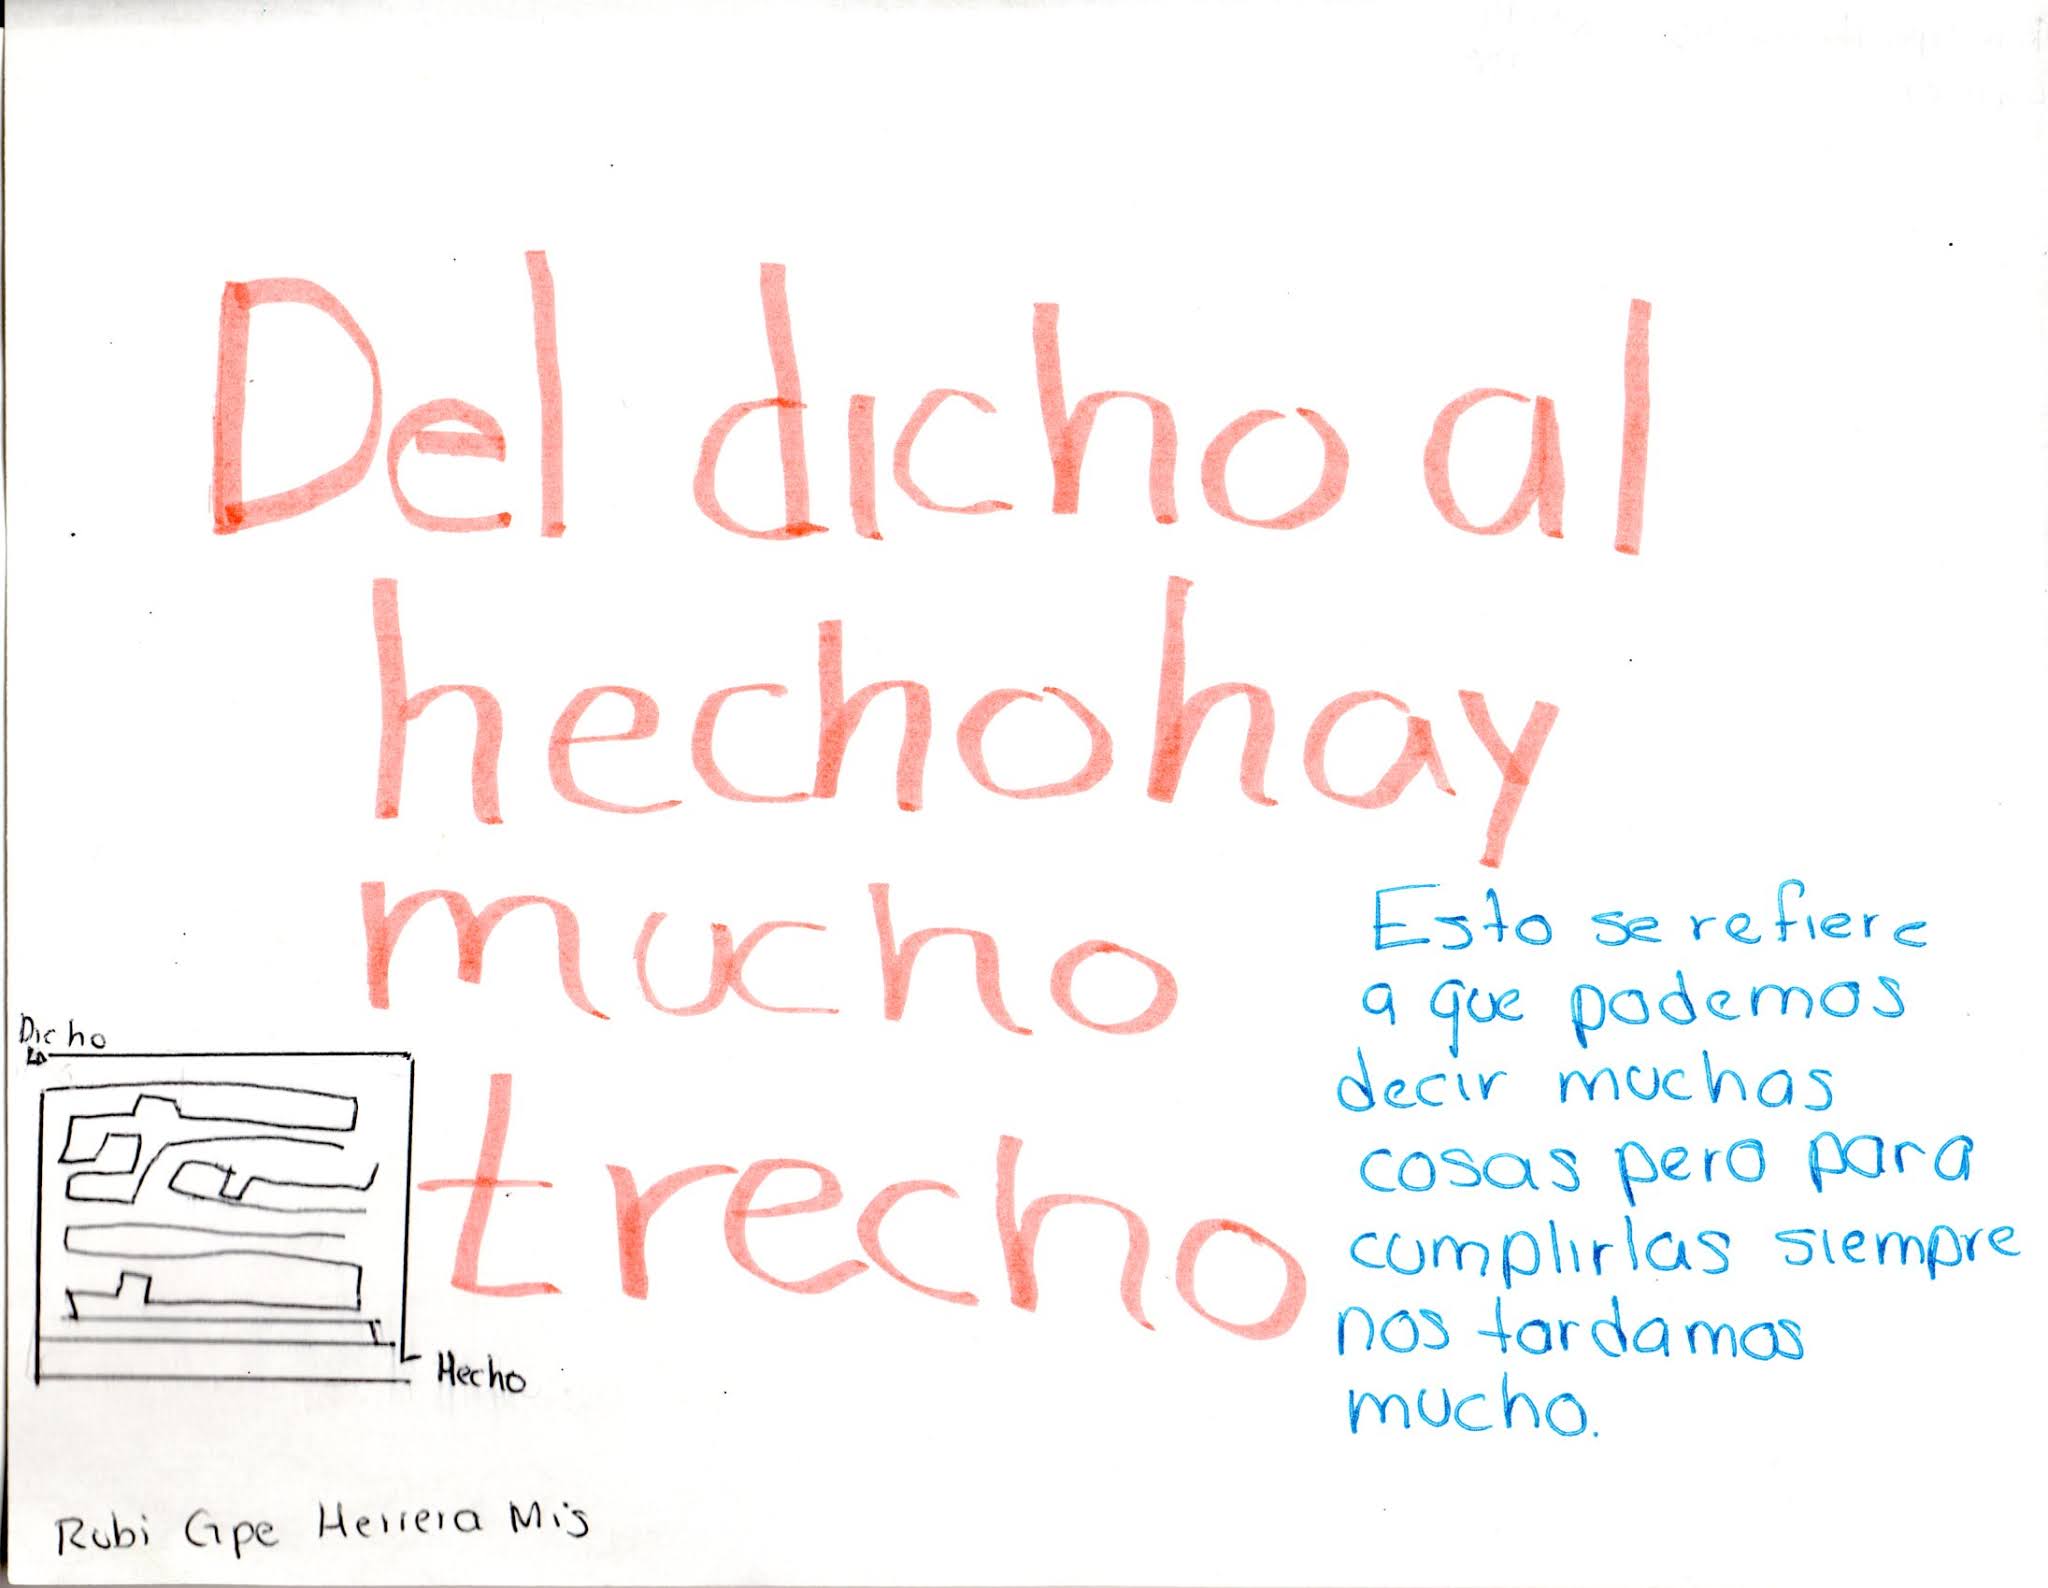 Del dicho al
hecho hay
mucho
trecho
Esto se refiere
a que podemos
decir muchas
cosas pero para
cumplirlas siempre
nos tardamos
mucho.
Dicho
Hecho
Rubi Gpe Herrera Mis